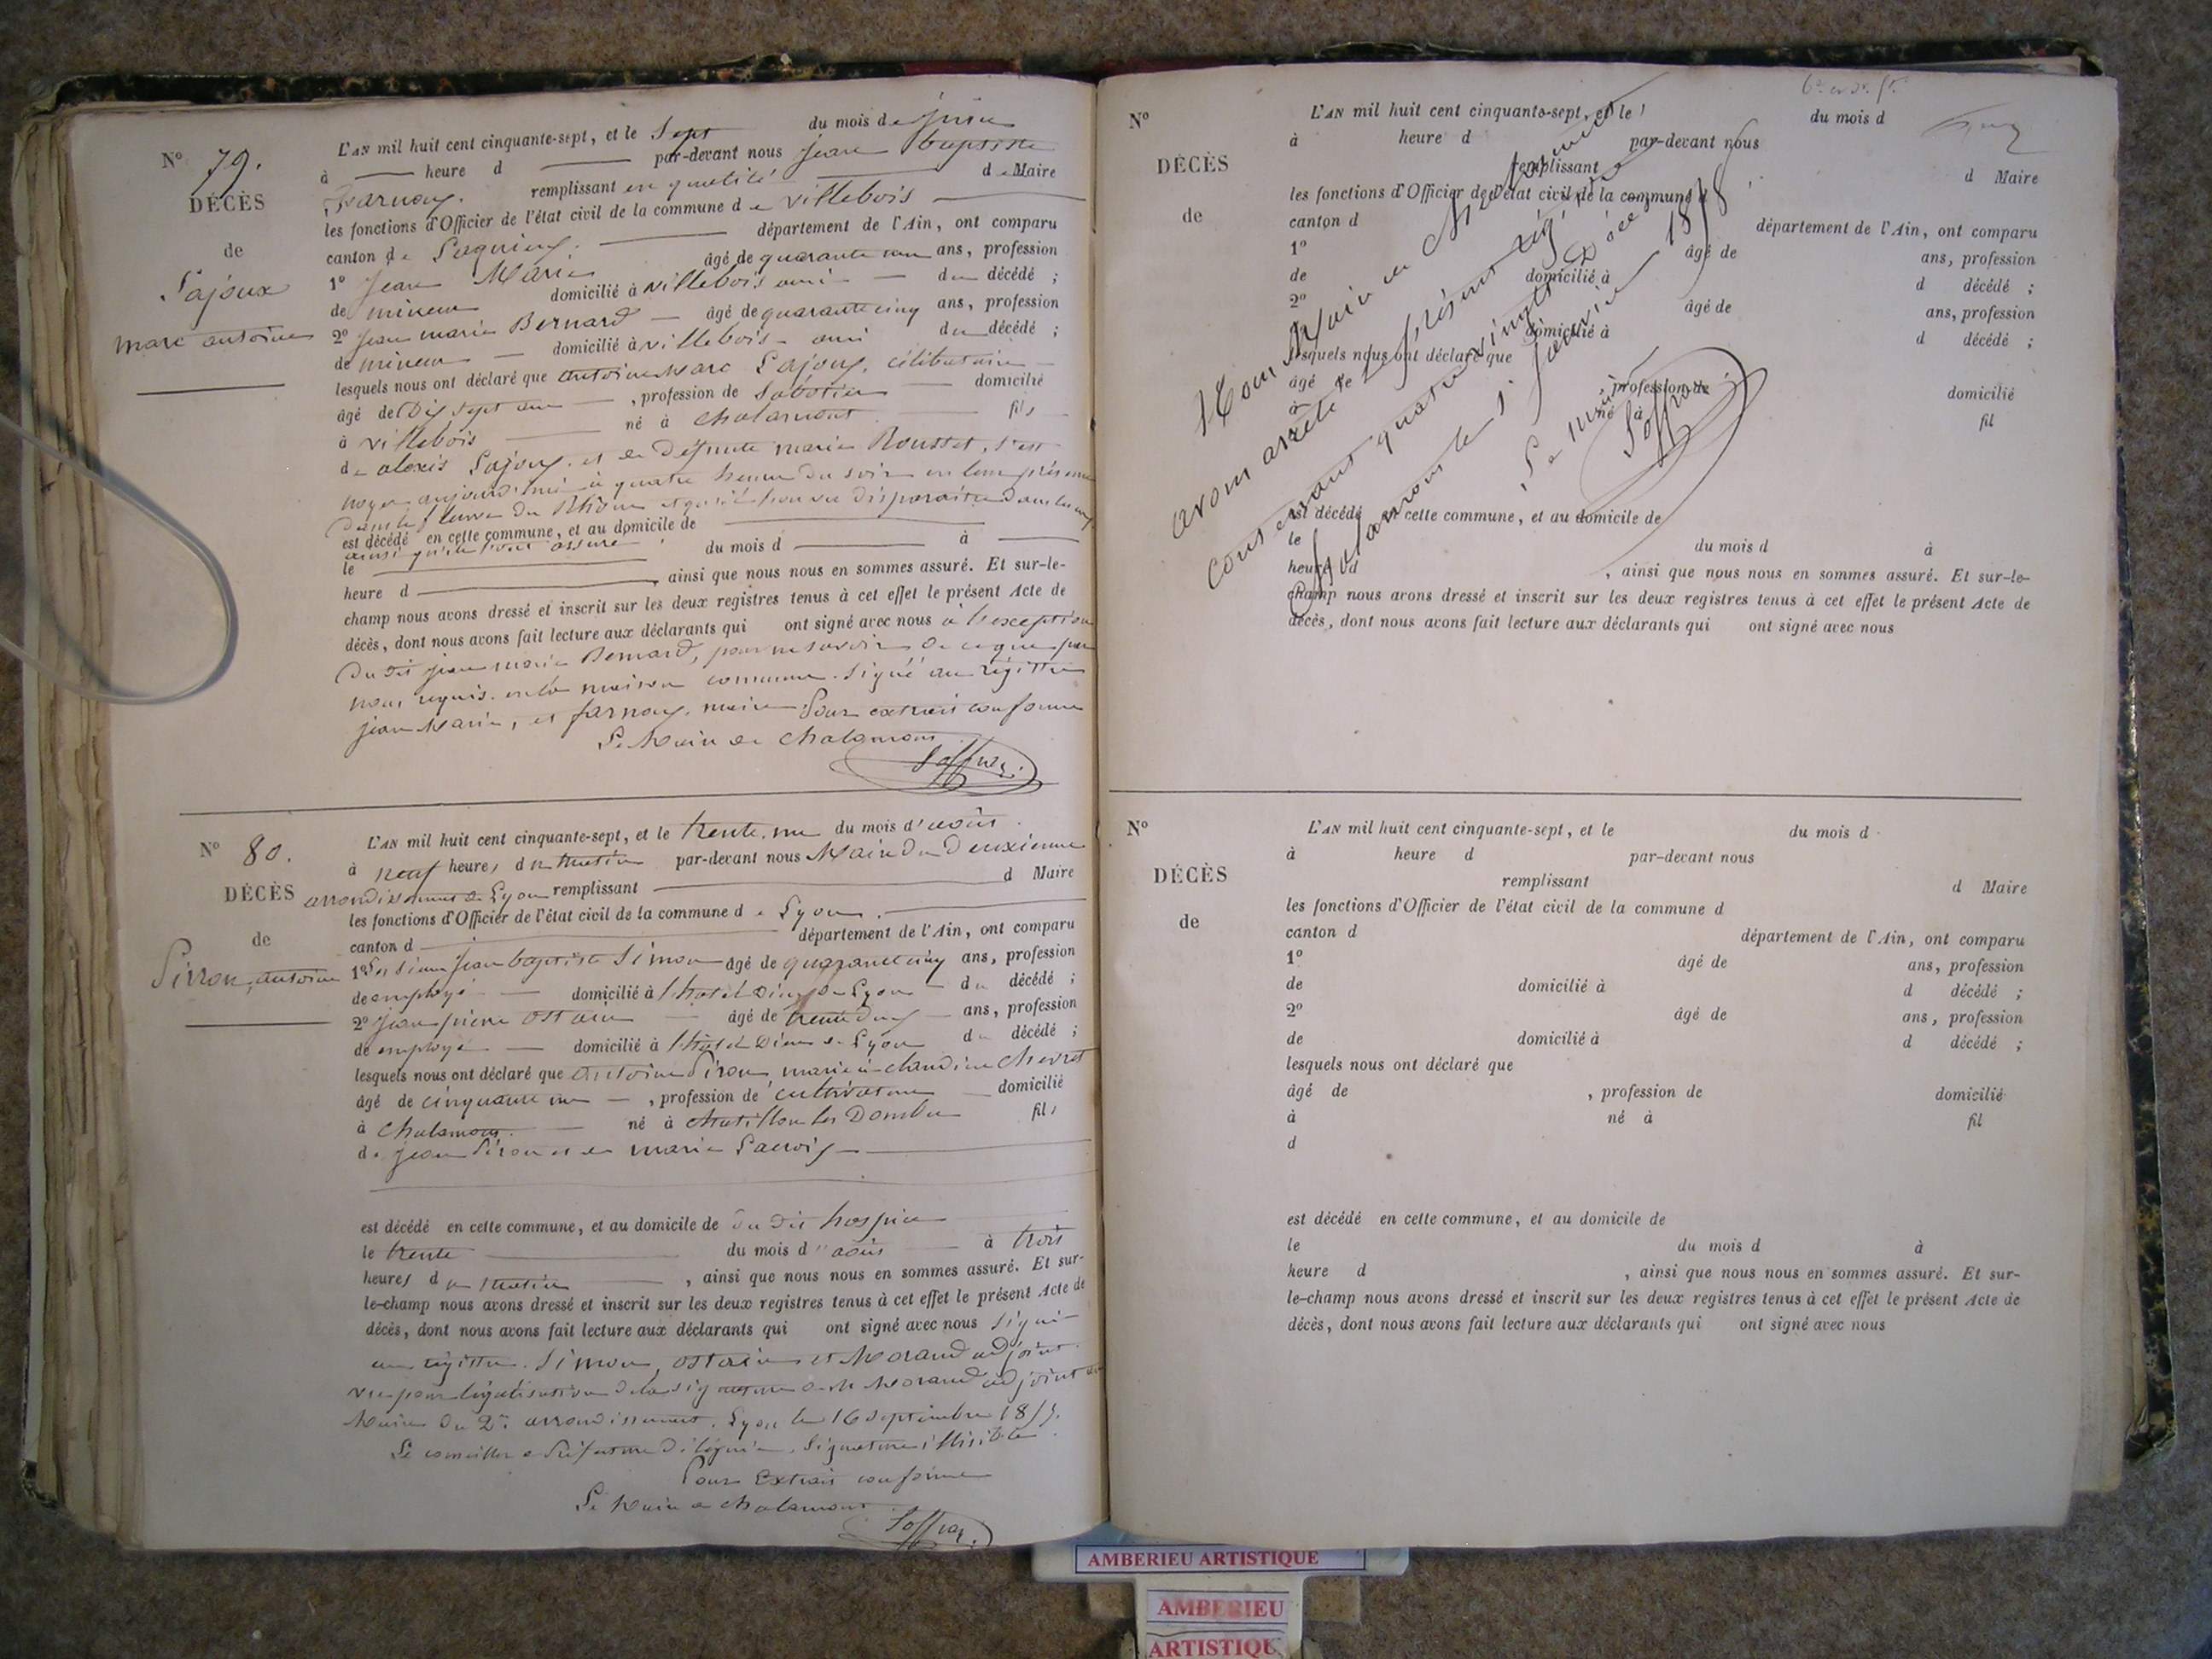 N° 79.
DÉCÈS
de
Lajoux
marc antoine
L'AN mil huit cent cinquante-sept, et le Sept du mois de juin
à heure d par-devant nous jean baptiste
Farnoux. remplissant en qualité de Maire
les fonctions d'Officier de l'état civil de la commune de villebois
canton de Lagnieu. département de l'Ain, ont comparu
1° jean Marin âgé de quarante un ans, profession
de mineur domicilié à villebois ami du décédé ;
2° jean marie Bernard âgé de quarante cinq ans, profession
de mineur domicilié à villebois ami du décédé ;
lesquels nous ont déclaré que antoine Marc Lajoux, célibataire
âgé de Dix sept ans, profession de Sabotier domicilié
à villebois né à chalamont fils
de alexis Lajoux et de Défunte marie Rousset, s'est
noyé aujourd'hui à quatre heures du soir en leur présence
Dans le fleuve du Rhône et qu'ils l'ont vu disparaitre dans les eaux
est décédé en cette commune, et au domicile de
ainsi qu'ils l'ont assuré
le du mois d à
heure d , ainsi que nous nous en sommes assuré. Et sur-le-
champ nous avons dressé et inscrit sur les deux registres tenus à cet effet le présent Acte de
décès, dont nous avons fait lecture aux déclarants qui ont signé avec nous à l'exception
Du dit jean marie Bernard, pour ne savoir de ce que par
nous requis. en la maison commune. Signé au régistre
jean Marin, et farnoux, maire Pour extrait conforme
Le Maire de chalamont
N° 80.
DÉCÈS
de
Pirron, antoine
L'AN mil huit cent cinquante-sept, et le trente un du mois d'août.
à neuf heures du matin par-devant nous Maire Du Deuxième
arrondissement de Lyon remplissant d Maire
les fonctions d'Officier de l'état civil de la commune de Lyon.
canton d département de l'Ain, ont comparu
1° Les sieurs jean baptiste Simon âgé de quarante cinq ans, profession
de employé domicilié à l'hotel Dieu de Lyon du décédé ;
2° jean pierre ostain âgé de trente deux ans, profession
de employé domicilié à l'hotel Dieu de Lyon du décédé ;
lesquels nous ont déclaré que antoine Piron, marié à claudine chevret
âgé de cinquante un, profession de cultivateur domicilié
à chalamont. né à chatillon les Dombes fils
de jean Piron et de marie Lacroix
est décédé en cette commune, et au domicile de du dit hospice
le trente du mois d'août à trois
heures du matin, ainsi que nous nous en sommes assuré. Et sur-
le-champ nous avons dressé et inscrit sur les deux registres tenus à cet effet le présent Acte de
décès, dont nous avons fait lecture aux déclarants qui ont signé avec nous signé
au régistre. Simon, ostain et Morand adjoint.
vu pour légalisation de la signature de M Morand adjoint au
Maire du 2me arrondissement. Lyon le 16 septembre 1857.
Le conseiller de Préfecture Délégué. Signature illisible.
Pour Extrait conforme
Le Maire de chalamont
N°
DÉCÈS
de
L'AN mil huit cent cinquante-sept, et le du mois d
à heure d par-devant nous
remplissant d Maire
les fonctions d'Officier de l'état civil de la commune d
canton d département de l'Ain, ont comparu
1° âgé de ans, profession
de domicilié à d décédé ;
2° âgé de ans, profession
de domicilié à d décédé ;
lesquels nous ont déclaré que
âgé de , profession de domicilié
à né à fil
Nous Maire de Chalamont
avons arrêté le présent régistre
contenant quatre vingts Décès
Chalamont le 1er janvier 1858
Le Maire
est décédé en cette commune, et au domicile de
le du mois d à
heure d , ainsi que nous nous en sommes assuré. Et sur-le-
champ nous avons dressé et inscrit sur les deux registres tenus à cet effet le présent Acte de
décès, dont nous avons fait lecture aux déclarants qui ont signé avec nous
N°
DÉCÈS
de
L'AN mil huit cent cinquante-sept, et le du mois d
à heure d par-devant nous
remplissant d Maire
les fonctions d'Officier de l'état civil de la commune d
canton d département de l'Ain, ont comparu
1° âgé de ans, profession
de domicilié à d décédé ;
2° âgé de ans, profession
de domicilié à d décédé ;
lesquels nous ont déclaré que
âgé de , profession de domicilié
à né à fil
d
est décédé en cette commune, et au domicile de
le du mois d à
heure d , ainsi que nous nous en sommes assuré. Et sur-
le-champ nous avons dressé et inscrit sur les deux registres tenus à cet effet le présent Acte de
décès, dont nous avons fait lecture aux déclarants qui ont signé avec nous
AMBERIEU ARTISTIQUE
AMBERIEU
ARTISTIQUE